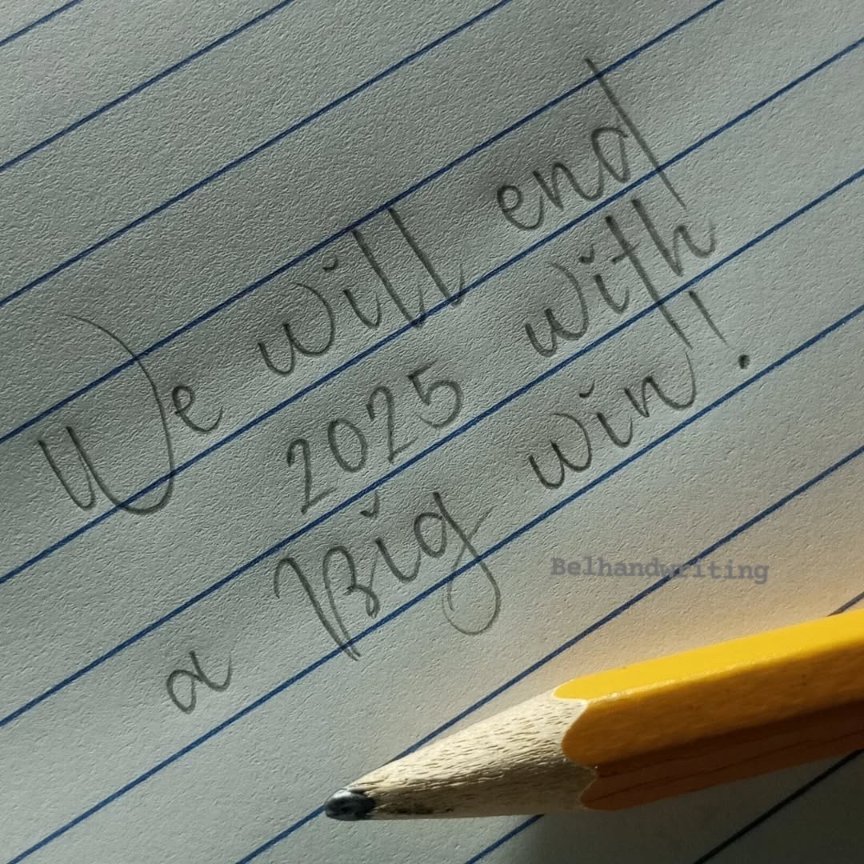 We will end
2025 with
a Big win!
Belhandwriting